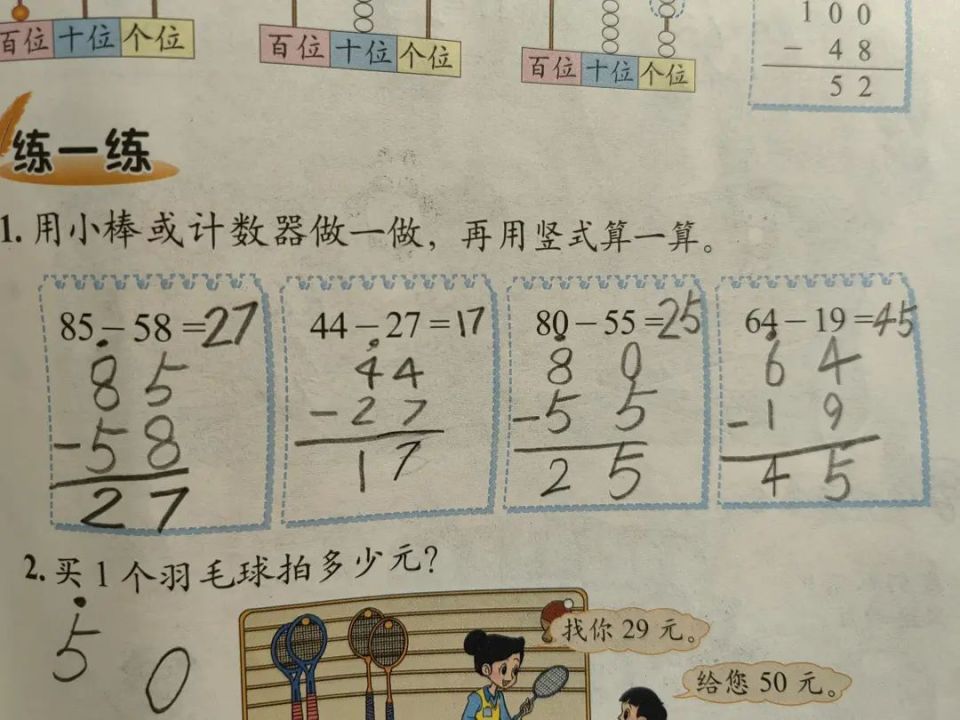 百位 十位 个位
百位 十位 个位
百位 十位 个位
100
- 48
52
练一练
1. 用小棒或计数器做一做，再用竖式算一算。
85-58=27
85
-58
27
44-27=17
44
-27
17
80-55=25
80
-55
25
64-19=45
64
-19
45
2. 买1个羽毛球拍多少元？
找你29元。
给您50元。
50